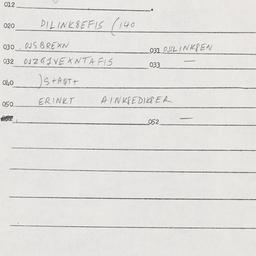 012
020 DILINKSEFIS (140
030 OJSBREXN 031 OJSLINKSEN
032 OJZGJVEXNTAFIS 033 —
040 )S+AGT+
050 ERINKT AINKSEDIKSER
052 —